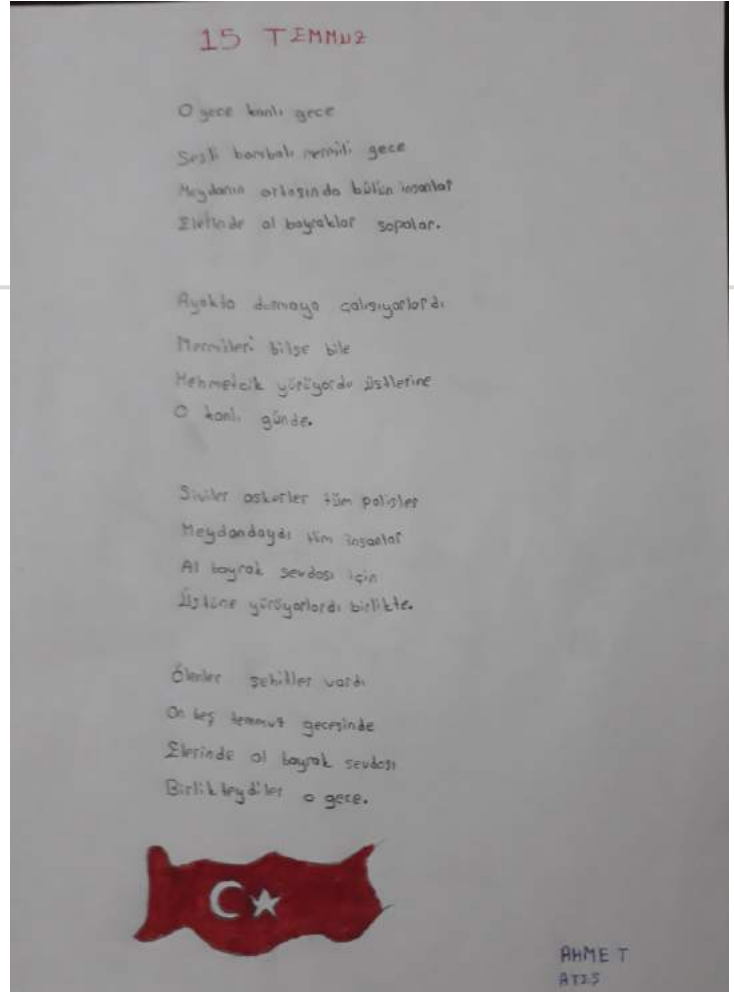 15 TEMMUZ
O gece kanlı gece
Sesli bombalı mermili gece
Meydanın ortasında bütün insanlar
Elerinde al bayraklar sopalar.
Ayakta durmaya çalışıyorlardı
Mermileri bitse bile
Mehmetcik yürüyordu üstlerine
O kanlı günde.
Siviler askerler tüm polisler
Meydandaydı tüm insanlar
Al bayrak sevdası için
Üstüne yürüyorlardı birlikte.
Ölenler şehitler vardı
On beş temmuz gecesinde
Elerinde al bayrak sevdası
Birlikteydiler o gece.
AHMET
ATEŞ